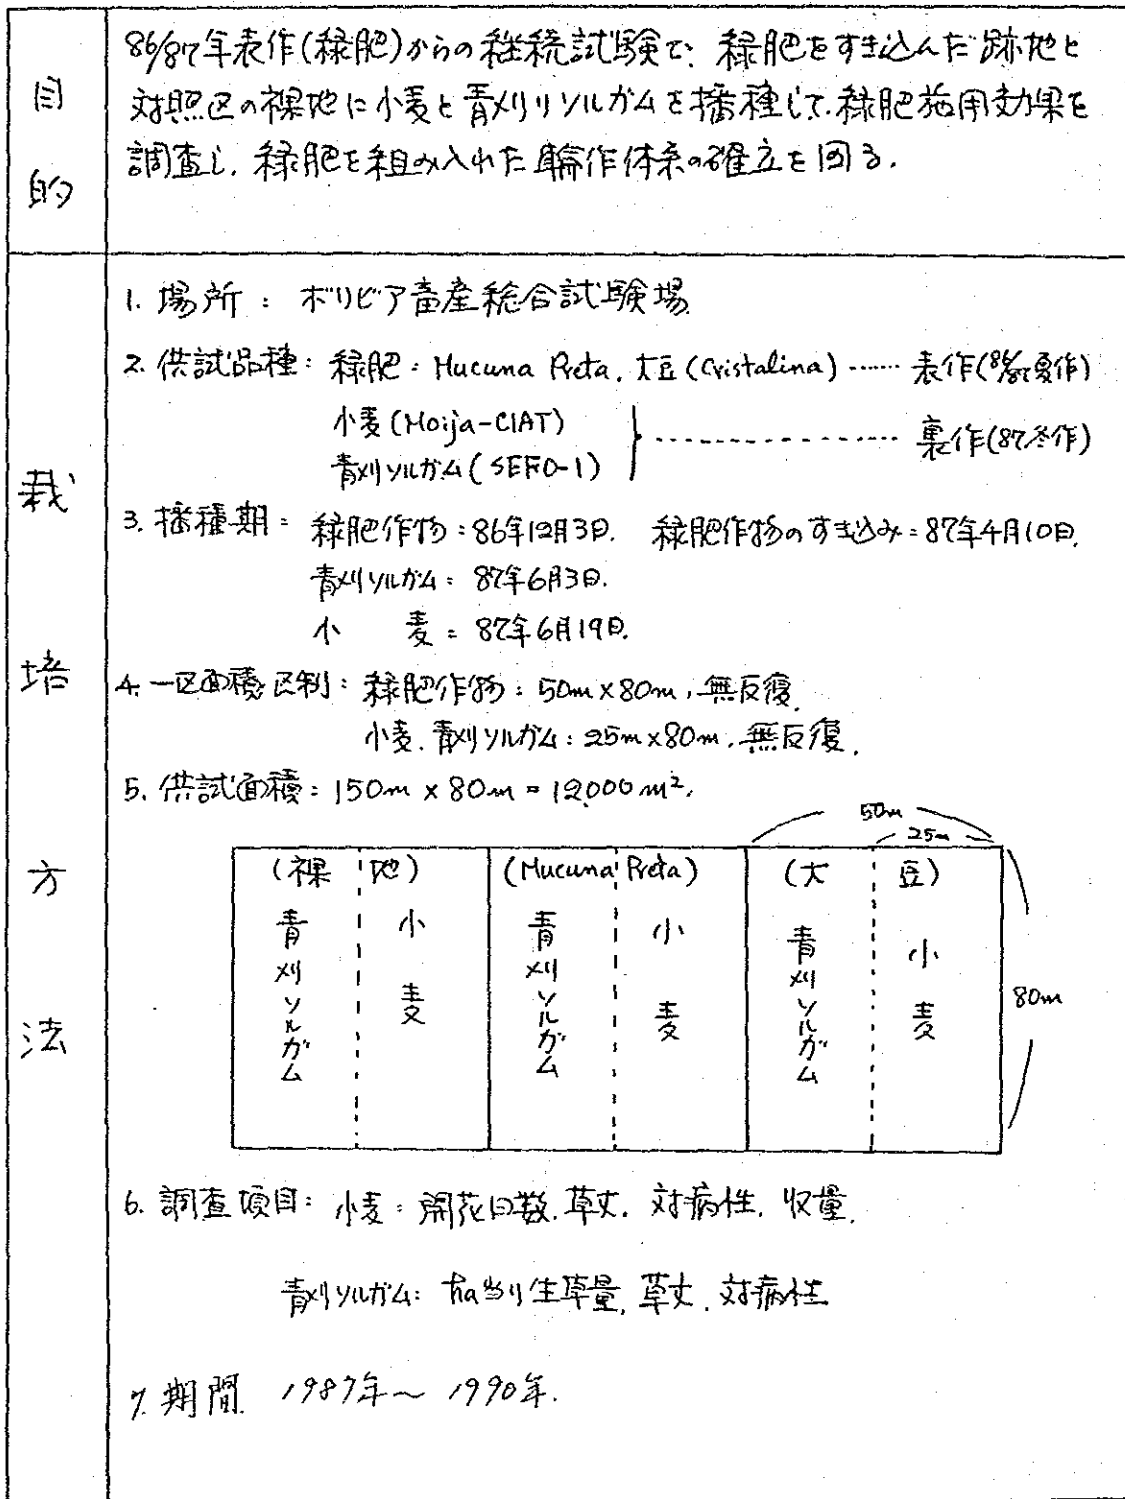 目的
86/87年表作(緑肥)からの継続試験で、緑肥をすき込んだ跡地と
対照区の裸地に小麦と青刈りソルガムを播種して、緑肥施用効果を
調査し、緑肥を組み入れた輪作体系の確立を図る。
栽培方法
1. 場所： ボリビア畜産総合試験場
2. 供試品種： 緑肥： Mucuna Preta, 大豆(Cristalina) …… 表作(86/87夏作)
小麦(Moija-CIAT)
青刈ソルガム(SEFO-1) } …………… 裏作(87冬作)
3. 播種期： 緑肥作物：86年12月3日. 緑肥作物のすき込み：87年4月10日.
青刈ソルガム： 87年6月3日.
小 麦： 87年6月19日.
4. 一区面積,区制： 緑肥作物： 50m×80m, 無反復.
小麦, 青刈ソルガム： 25m×80m, 無反復.
5. 供試面積： 150m × 80m = 12,000 m².
50m
25m
(裸 地) (Mucuna Preta) (大 豆)
青刈ソルガム 小麦 青刈ソルガム 小麦 青刈ソルガム 小麦
80m
6. 調査項目： 小麦： 開花日数, 草丈, 対病性, 収量.
青刈ソルガム： ha当り生草量, 草丈, 対病性
7. 期間. 1987年～1990年.